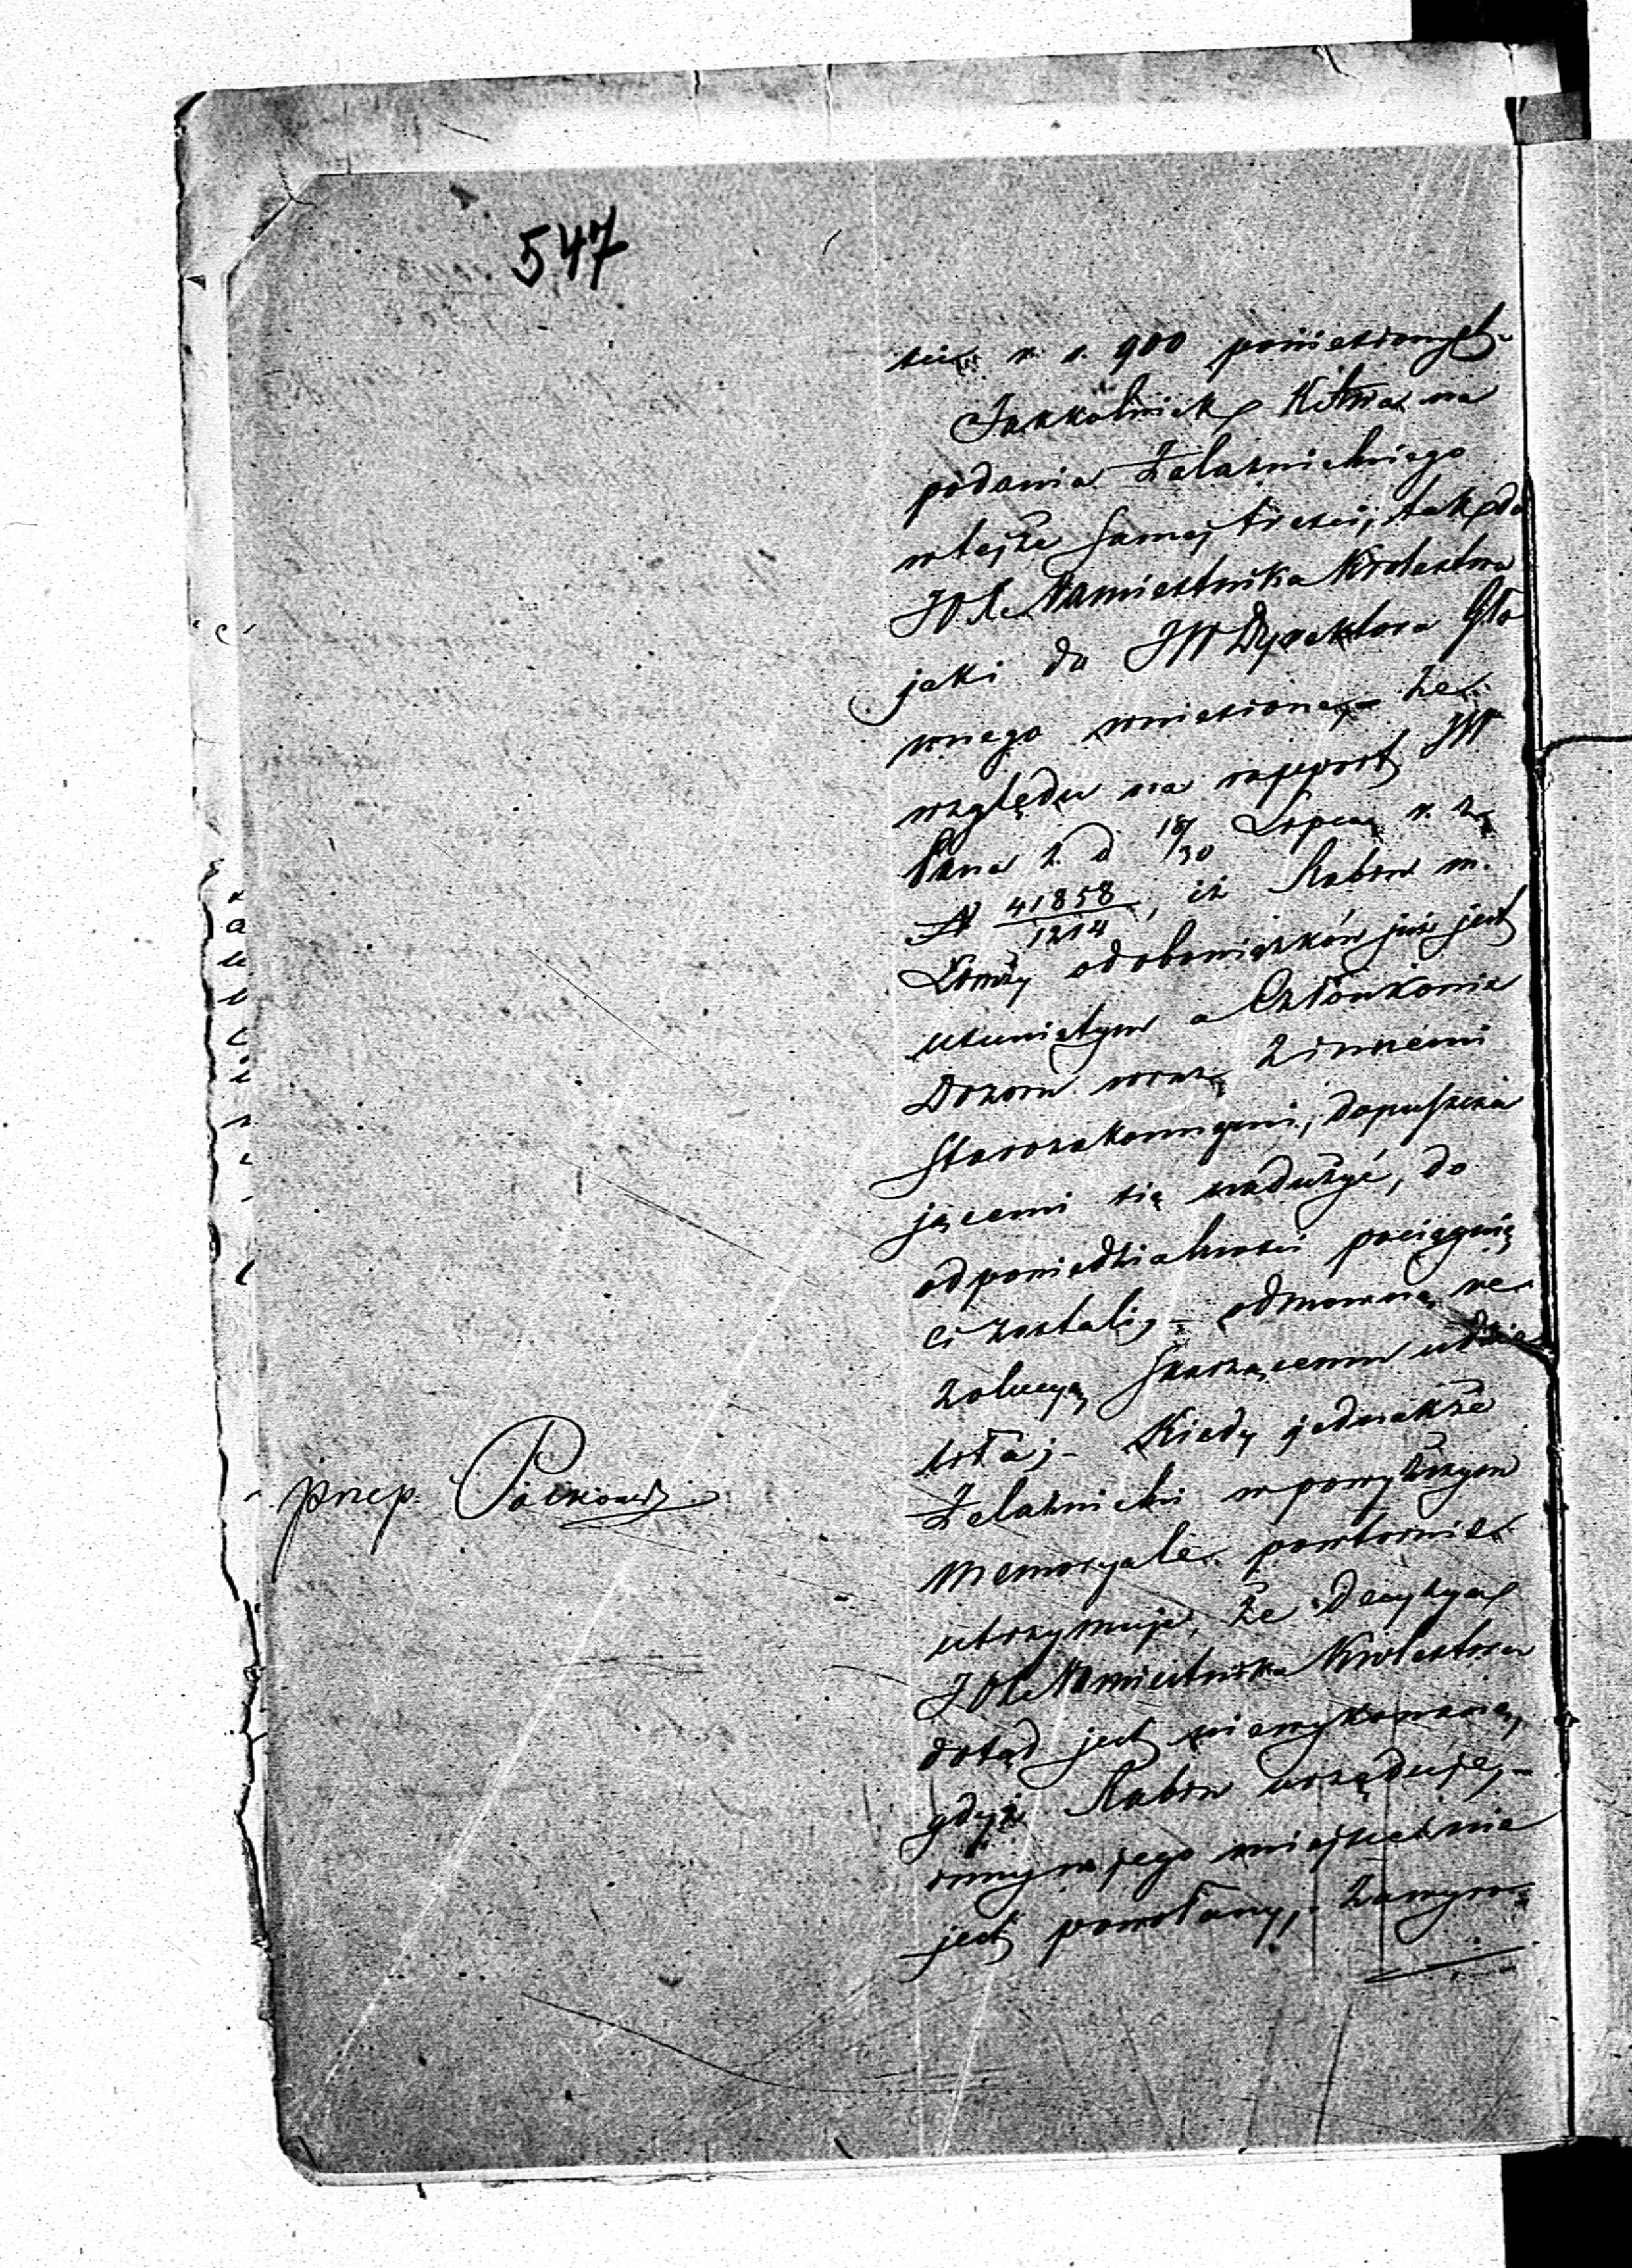 547
rs. 900 poniesionych
Jakkolwiek K na
podania Żelaźnickiego
wtejże samej treści, tak do
JO Namiestnika Królestwa
jaki do JW Dyrektora Głó
wnego wniesione, - ze
względu na rapport JW
Pana z d 18/30 Lipca r. z.
N 41858/1214, iż Rabin m.
Łomży od obowiązków już jest
usuniętym a Członkowie
Dozoru wraz z innemi
Starozakonnymi, dopuszcza
jącemi się nadużyć, do
odpowiedzialności pociągnię
ci zostali, - odmowną re
zolucyą skarżącemu udzie
liła; - Kiedy jednakże
Żelaźnicki w powyższym
memoryale powtórnie
utrzymuje, że Decyzya
JO Namiestnika Królestwa
dotąd jest niewykonaną,
gdyż Rabin urzęduje, -
inny na jego miejsce nie
jest powołany, - zawyro=
przep.